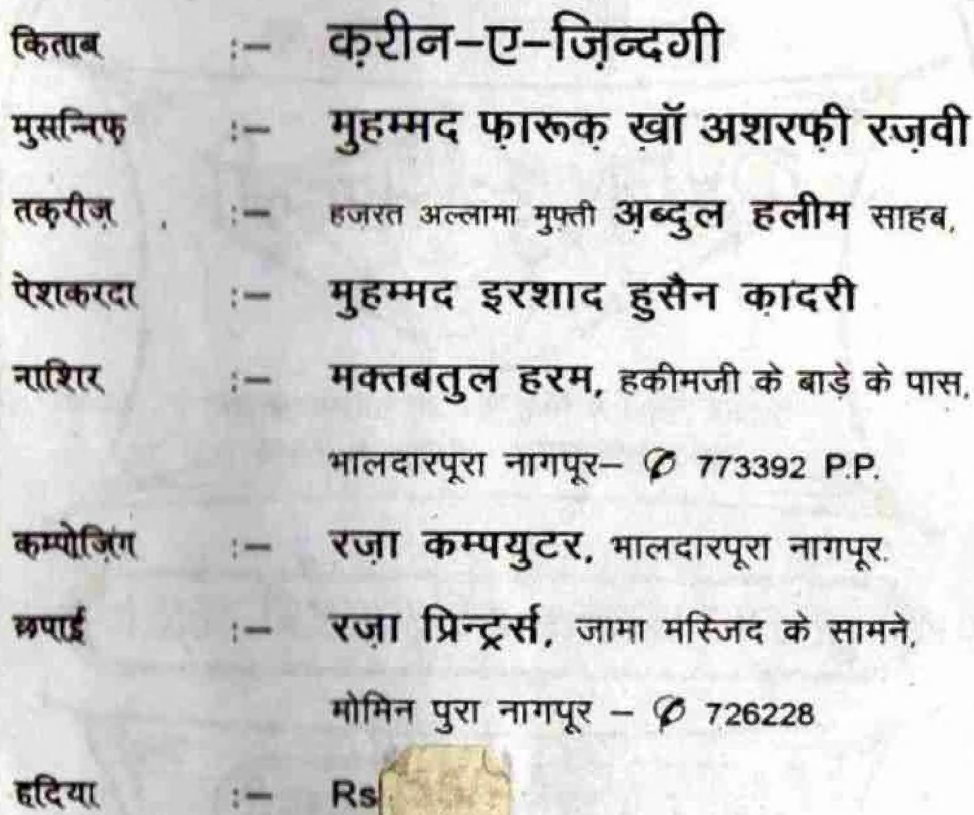 किताब :— क़रीन-ए-ज़िन्दगी
मुसन्निफ़ :— मुहम्मद फ़ारूक़ ख़ॉ अशरफ़ी रज़वी
तक़रीज़ :— हजरत अल्लामा मुफ़्ती अ़ब्दुल हलीम साहब,
पेशकरदा :— मुहम्मद इरशाद हुसैन क़ादरी
नाशिर :— मक्तबतुल हरम, हकीमजी के बाड़े के पास,
भालदारपूरा नागपूर— ✆ 773392 P.P.
कम्पोज़िंग :— रज़ा कम्पयुटर, भालदारपूरा नागपूर.
छपाई :— रज़ा प्रिन्ट्रर्स, जामा मस्जिद के सामने,
मोमिन पुरा नागपूर — ✆ 726228
हदिया :— Rs